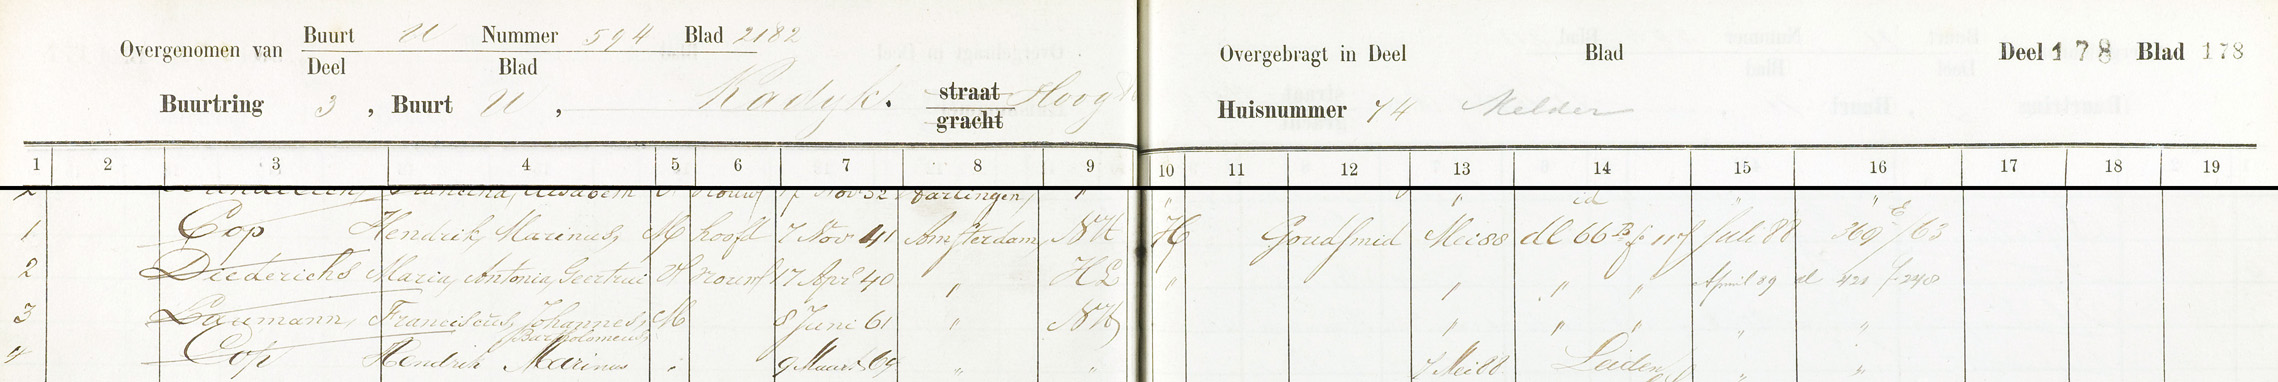 Overgenomen van Buurt U Nummer 594 Blad 2182
Deel Blad
Buurtring 3, Buurt U, Kadyk. straat gracht Hoog
Overgebragt in Deel Blad Deel 178 Blad 178
Huisnummer 74 Kelder
1 2 3 4 5 6 7 8 9 10 11 12 13 14 15 16 17 18 19
2 Francina Elisabeth V vrouw 17 Nov 52 Harlingen " " " id " "
1 Cop Hendrik Marinus M hoofd 7 Nov 41 Amsterdam NH H Goudsmid Mei 88 dl 66 B f 117 Juli 88 269 E f 63
2 Diederichs Maria Antonia Geertrui V vrouw 17 Apr 40 " HL " " " " April 89 d 421 f 248
3 Laumann Franciscus Johannes M 8 Juni 61 " NH " " " " "
Bartholomeus
4 Cop Hendrik Marinus " 9 Maart 69 " " 7 Mei 88 Leiden " "